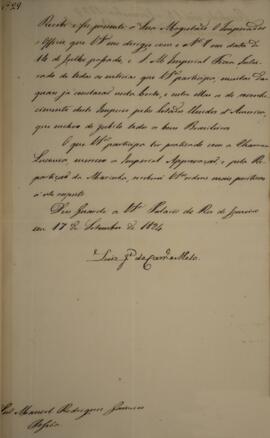 Nº 29
Recebi e fiz presente a Sua Magestade O Imperador
o Officio que VSª me dirigio com o Nº 1 em data de
14 de Julho passado, e S. M. Imperial ficou Inteirado
de todas as noticias que VSª participa, muitas das
quaes já constavão nesta Corte, e entre ellas a do reconhecimento
deste Imperio pelos Estados Unidos d'America,
que encheo de jubilo todo o bom Brasileiro.
O que VSª participa ter praticado com a Charrua
Lucania, mereceo a Imperial Approvação, e pela Repartição
da Marinha, receberá VSª ordens mais positivas
a este respeito.
Deos Guarde a VSª Palacio do Rio de Janeiro
em 17 de Setembro de 1824
Luiz Jº de Carvº e Mello.
Snr. Manoel Rodrigues Gameiro
Pessôa